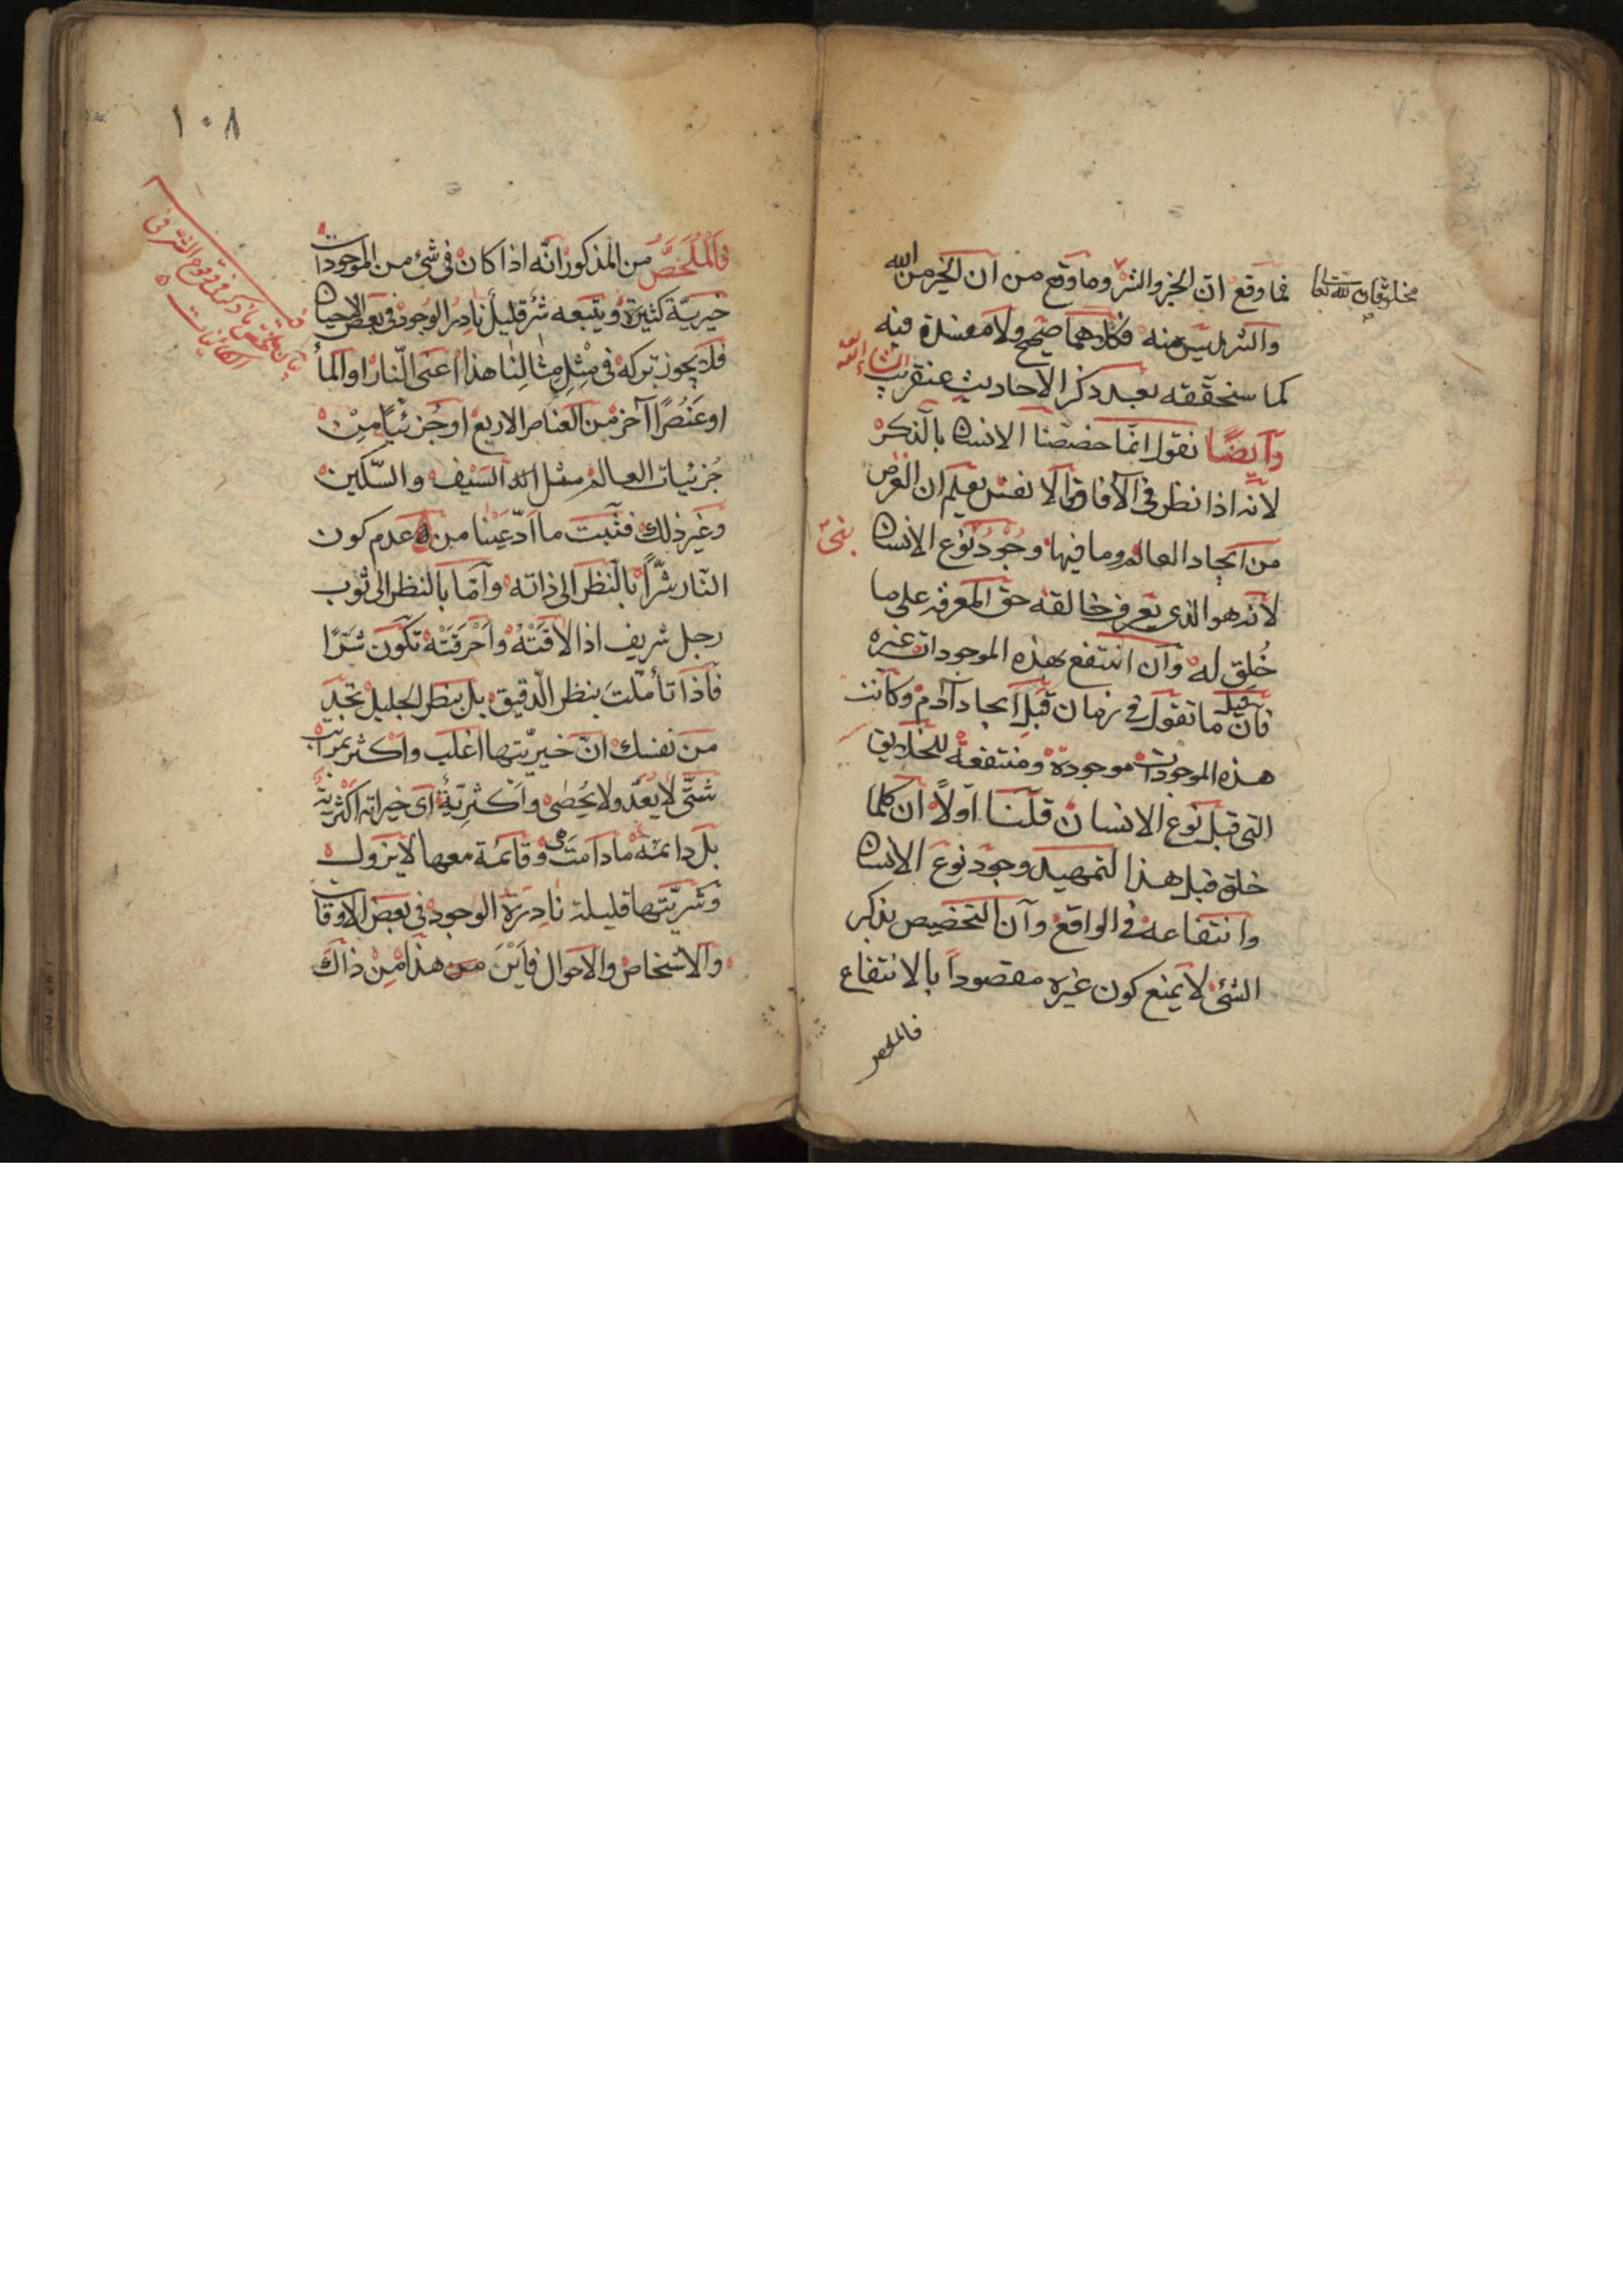 فما وقع ان الخير والشر وما وقع من ان الخير من الله
مخلوقان لله تعالى
والشر ليس منه فكلاهما صحيح ولا مفسدة فيه
كما سنحققه بعد ذكر الاحاديث عنقريب
ان شاء الله
وايضًا نقول انما خصصنا الانسان بالذكر
لانه اذا نظر في الآفاق والانفس يعلم ان الغرض
من ايجاد العالم وما فيها وجود نوع الانسان
لانه هو الذي يعرف خالقه حق المعرفة على ما
خُلِق له وان انتفع بهذه الموجودات غيره
فان قيل ما تقول في زمان قبل ايجاد آدم وكانت
هذه الموجودات موجودة ومنتفعة للخلايق
التي قبل نوع الانسان قلنا اولاً ان كلما
خلق قبل هذا لتمهيد وجود نوع الانسان
وانتفاعه في الواقع وان التخصيص بذكر
الشئ لا يمنع كون غيره مقصوداً بالانتفاع
فالملخص
١٠٨
فَالْمُلَخَّصُ من المذكور انّه اذا كان في شئ من الموجودات
خيريّة كثيرة ويتبعه شر قليل نادر الوجود في بعض الاحيان
فلا يجوز تركه في مِثْلِ مِثالِنا هذا اعنى النّار او الماء
او عُنصُرًا آخر من العناصر الاربع او جُزئيًّا مِنْ
جُزئيات العالم مثل السَيْف والسّكين
وغير ذلك فثبت ما ادّعينا من عدم كون
النّار شرًّا بالنظر الى ذاته وامّا بالنظر الى ثوب
رجل شريف اذا لاقَتْهُ واَحْرَقَتْهُ تكون شرًّا
فاذا تأملّت بنظر الدّقيق بل بنظر الجليل تجد
من نفسك انّ خيريّتها اغلب واكثر بمراتب
شتّى لا يُعَدّ ولا يُحْصى واكثريّة اى خيراته اكثرية
بل دائمة ما دامت هى وقائمة معها لا يزول
وشرّيّتها قليلة نادِرَة الوجود في بعض الاوقات
والاشخاص والاحوال فاَيْنَ هذا مِنْ ذاك